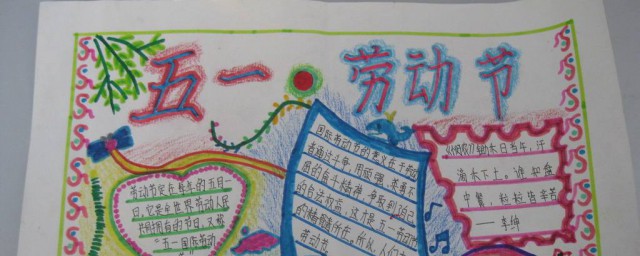 五一 劳动节
劳动节定在每年的五月
一日，它是全世界劳动人民
共同拥有的节日，又称
“五一国际劳动
国际劳动节的意义在于劳动
者通过斗争，用顽强、英勇不
屈的奋斗精神，争取到自己
的合法权益，
的精髓所在，所以，人们
劳动节
《悯农》锄禾日当午，汗
滴禾下土。谁知盘
中餐，粒粒皆辛苦
——李绅